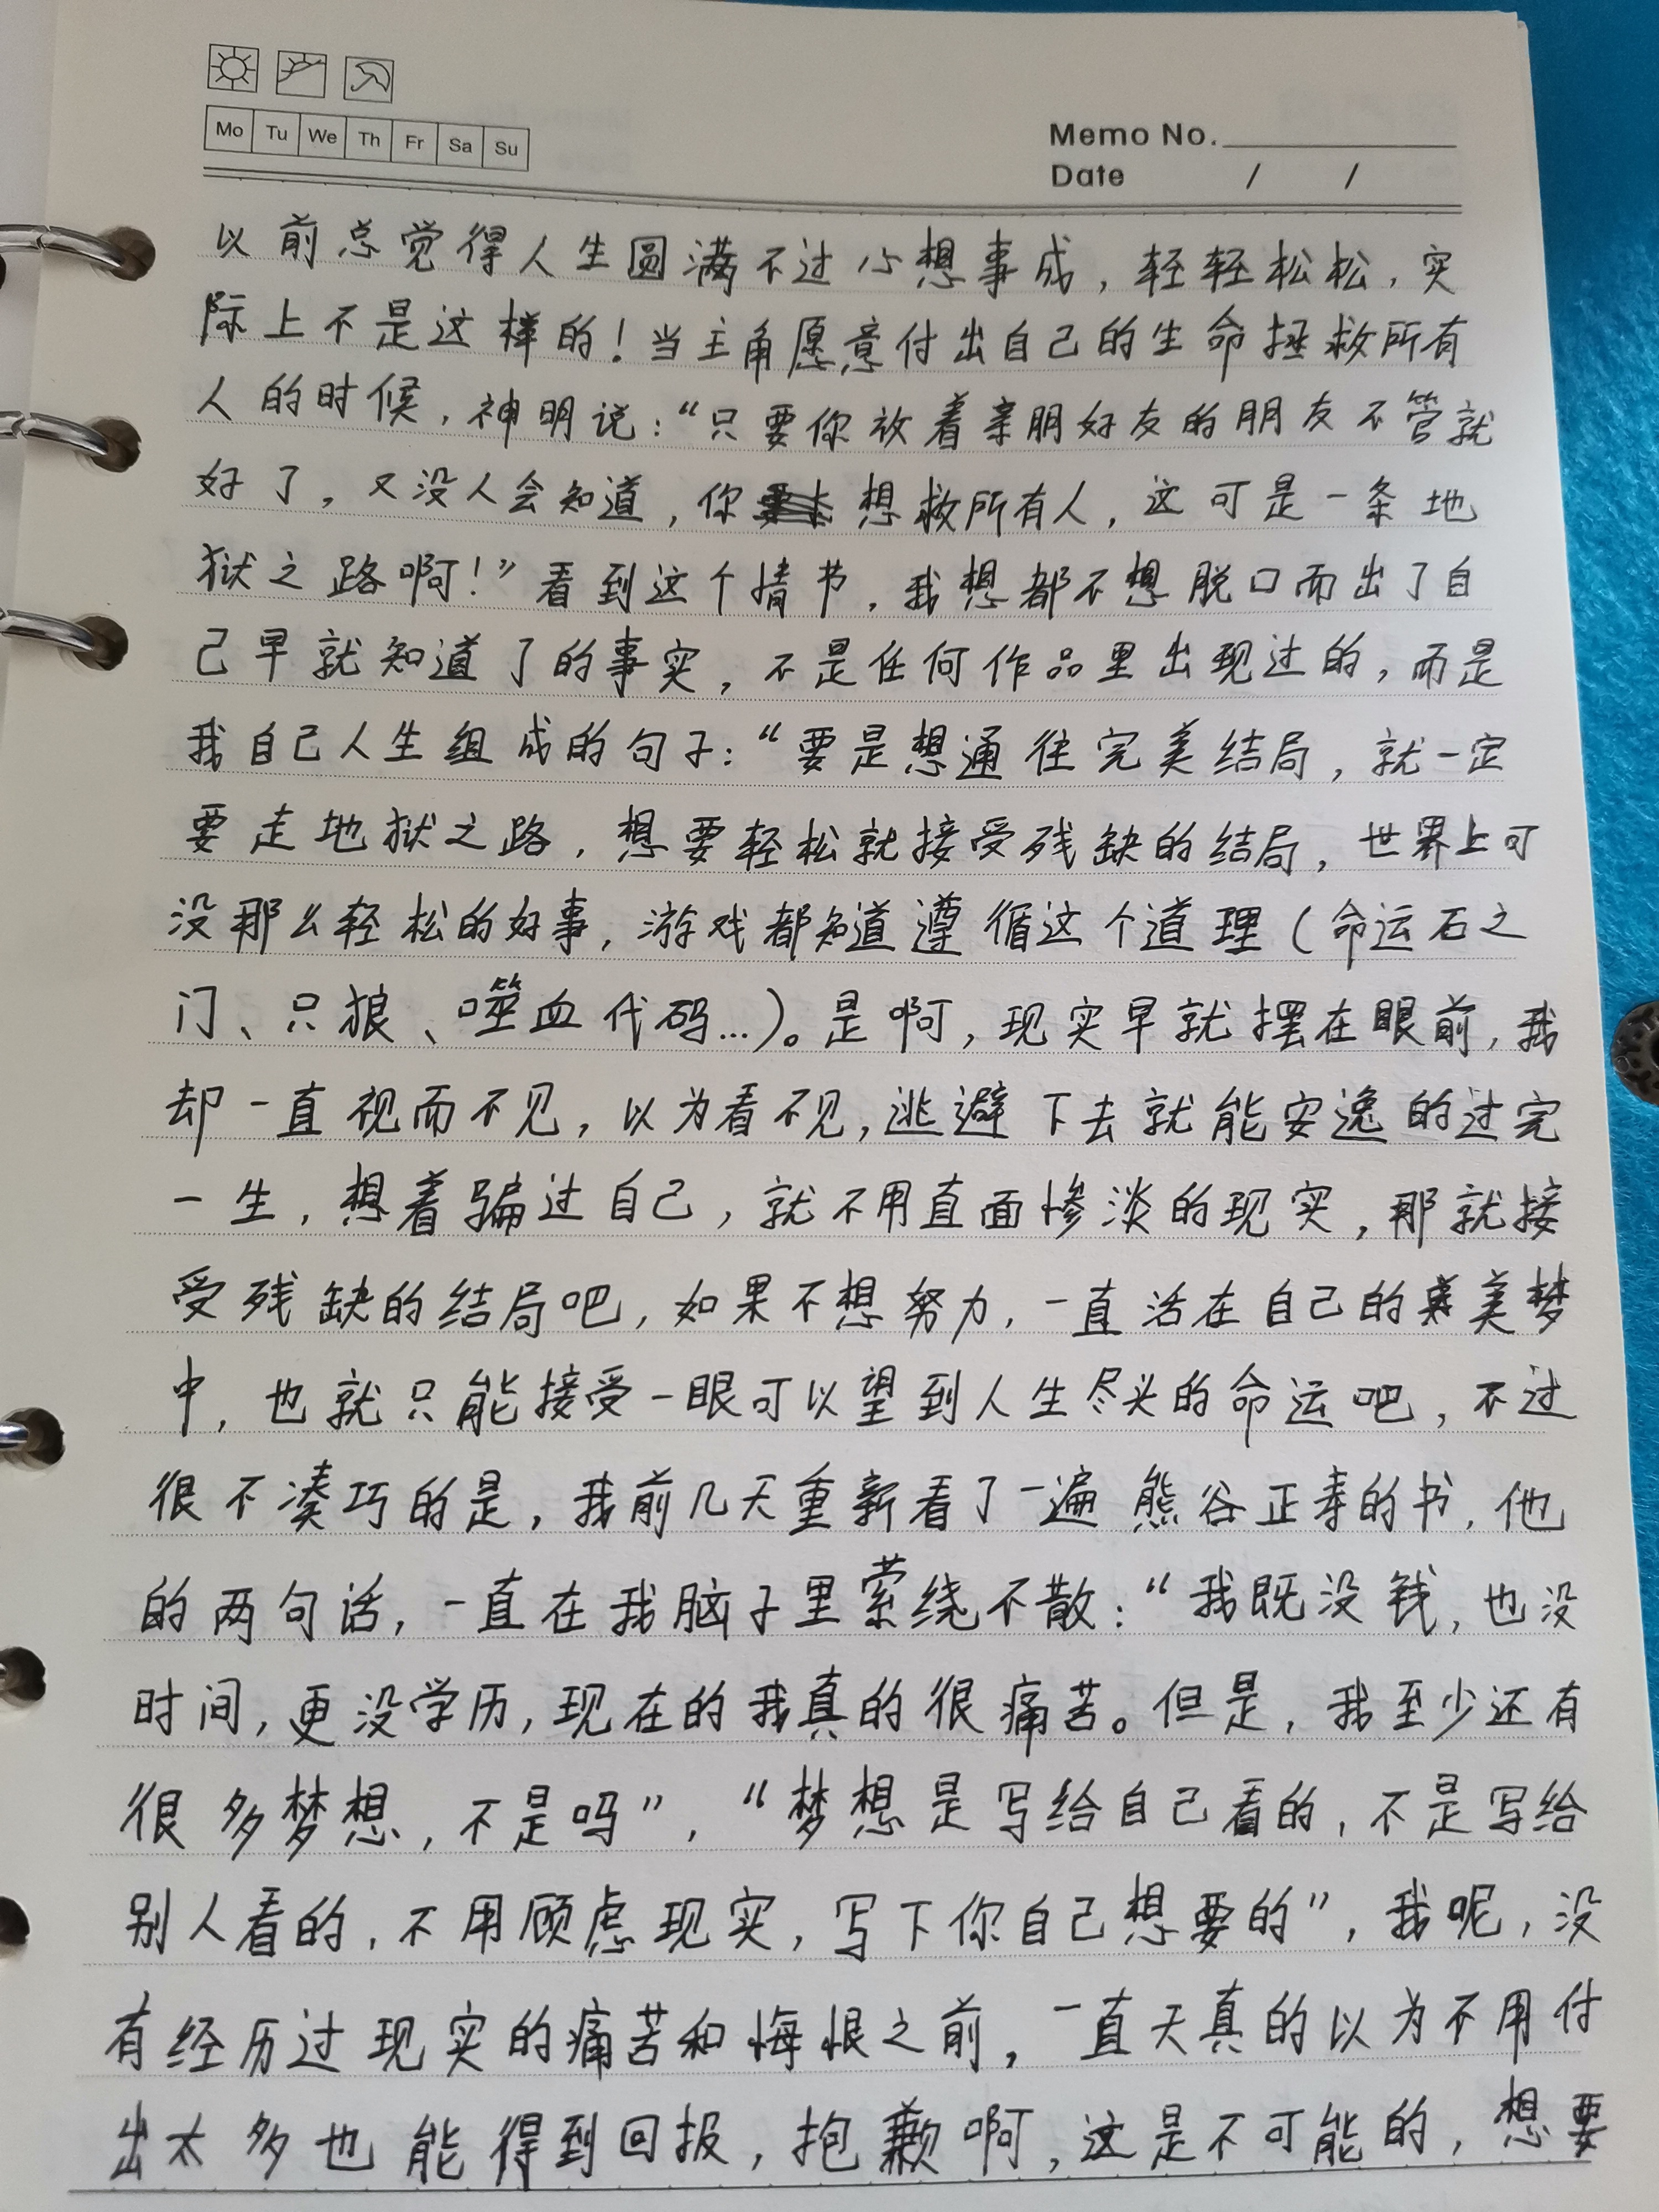 Mo Tu We Th Fr Sa Su
Memo No.
Date / /
以前总觉得人生圆满不过心想事成，轻轻松松，实
际上不是这样的！当主角愿意付出自己的生命拯救所有
人的时候，神明说：“只要你放着亲朋好友的朋友不管就
好了，又没人会知道，你想救所有人，这可是一条地
狱之路啊！”看到这个情节，我想都不想脱口而出了自
己早就知道了的事实，不是任何作品里出现过的，而是
我自己人生组成的句子：“要是想通往完美结局，就一定
要走地狱之路，想要轻松就接受残缺的结局，世界上可
没那么轻松的好事，游戏都知道遵循这个道理（命运石之
门、只狼、噬血代码...）。是啊，现实早就摆在眼前，我
却一直视而不见，以为看不见，逃避下去就能安逸的过完
一生，想着骗过自己，就不用直面惨淡的现实，那就接
受残缺的结局吧，如果不想努力，一直活在自己的美梦
中，也就只能接受一眼可以望到人生尽头的命运吧，不过
很不凑巧的是，我前几天重新看了一遍熊谷正寿的书，他
的两句话，一直在我脑子里萦绕不散：“我既没钱，也没
时间，更没学历，现在的我真的很痛苦。但是，我至少还有
很多梦想，不是吗”，“梦想是写给自己看的，不是写给
别人看的，不用顾虑现实，写下你自己想要的”，我呢，没
有经历过现实的痛苦和悔恨之前，一直天真的以为不用付
出太多也能得到回报，抱歉啊，这是不可能的，想要